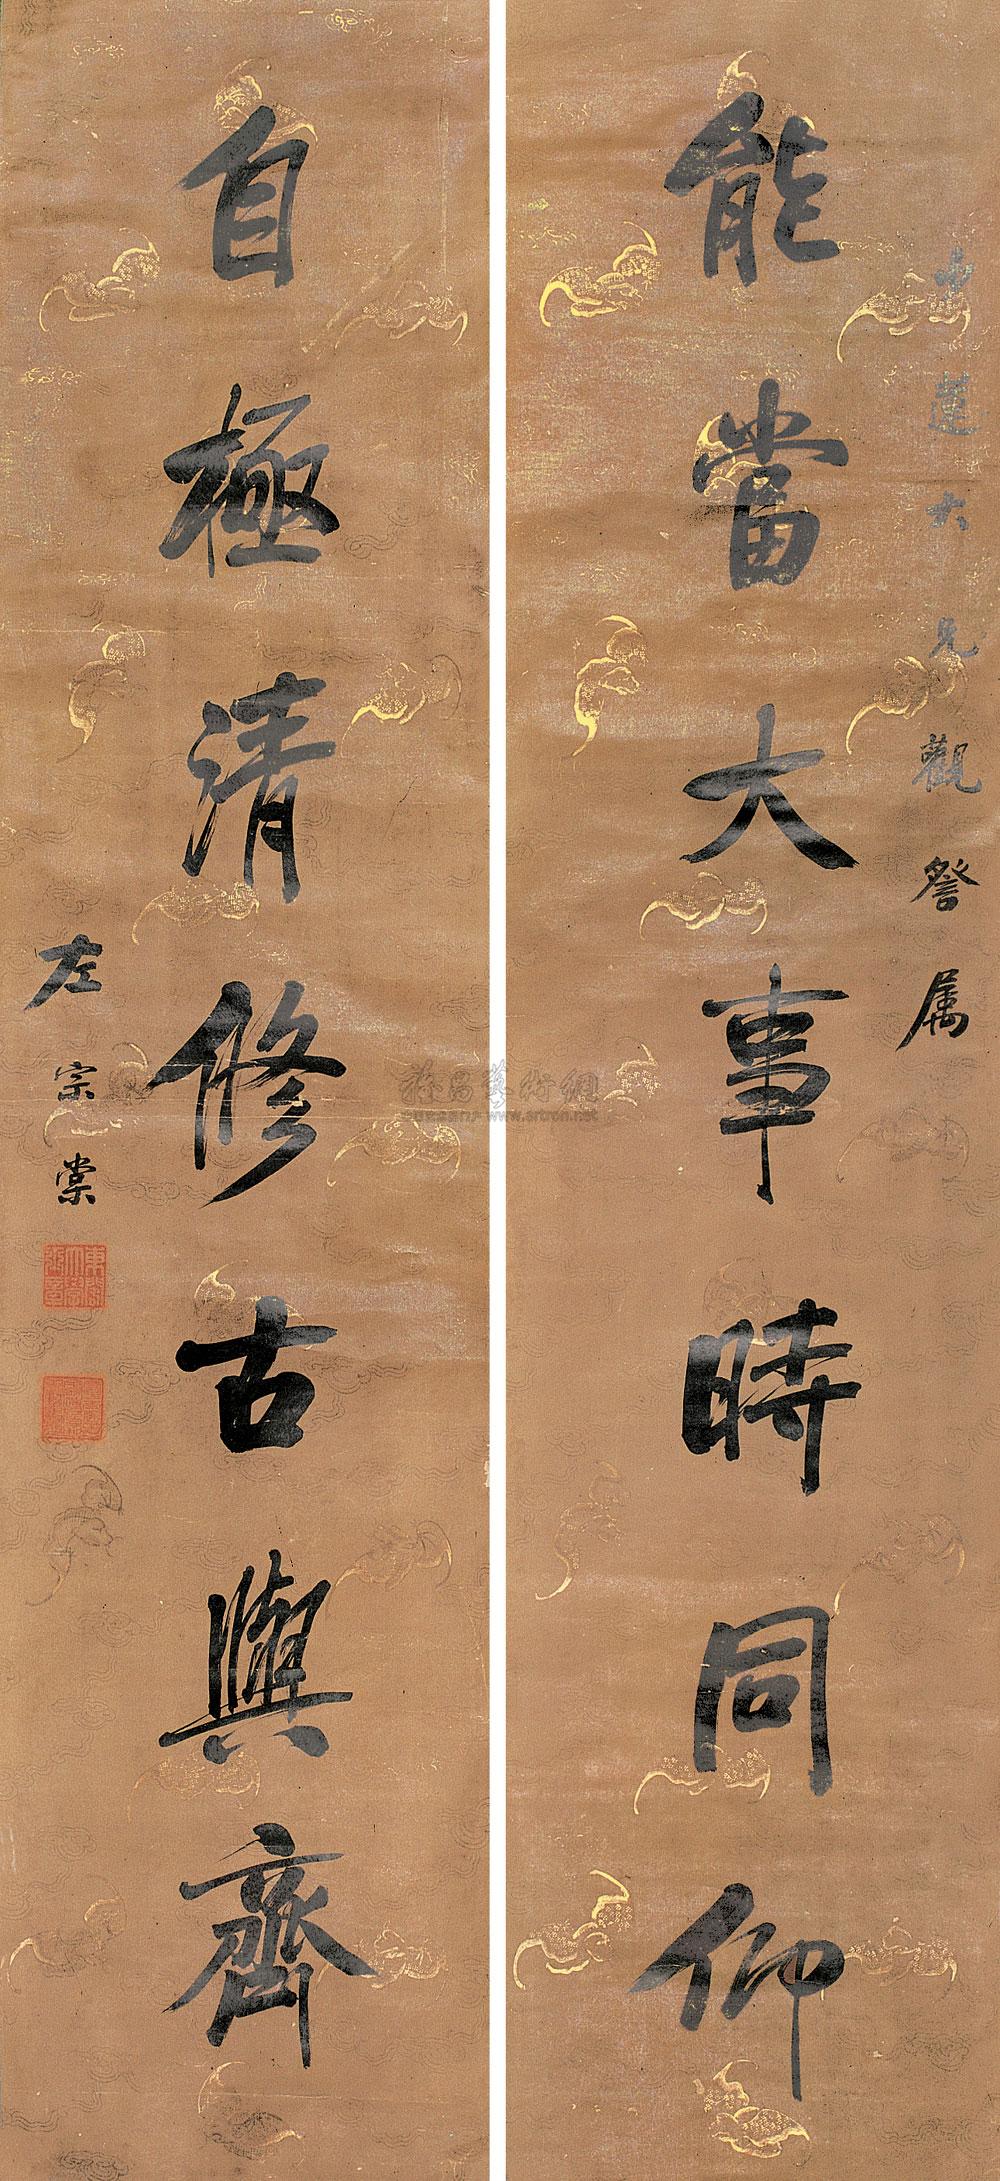 少蓮大兄觀詧属
能當大事時同仰
自極清修古與齊
左宗棠
雅昌藝術網
www.artron.net